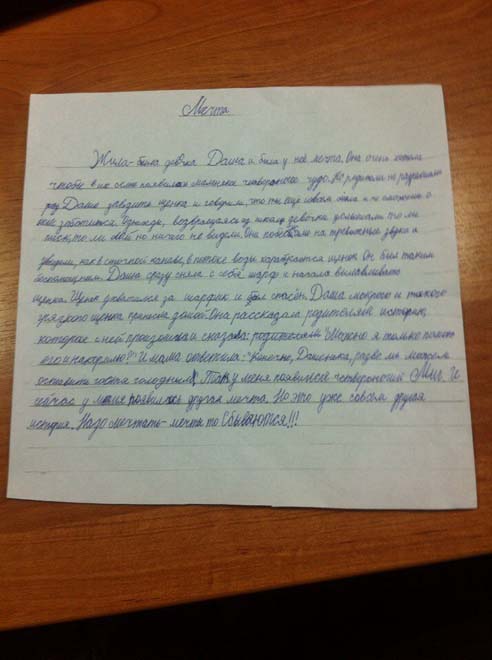 Мечта
Жила-была девочка Даша и была у неё мечта. Она очень хотела
чтобы в их семье появилось маленькое чудо. Но родители не разрешали
Даше заводить щенка и говорили, что ты ещё совсем мала и не сможешь о
нём заботиться. Однажды, возвращаясь из школы девочки услышали то ли
писк, то ли лай но ничего не видели. Они побежали на тревожные звуки и
увидели, как в сточной канаве, в потоке воды карабкается щенок. Он был таким
беспомощным. Даша сразу сняла с себя шарф и начала вылавливать
щенка. Щенок схватился за шарфик и был спасён. Даша мокрого и такого
грязного щенка принесла домой. Она рассказала родителям историю,
которое с ней произошла и сказала: родителям "Можно я только помою
его и накормлю?" И мама ответила: "Конечно, Дашенька, разве мы можем
оставить гостя голодным". Так у меня появился четвероногий И
сейчас у меня появилась другая мечта. Но это уже совсем другая
история. Надо мечтать- мечты то Сбываются!!!